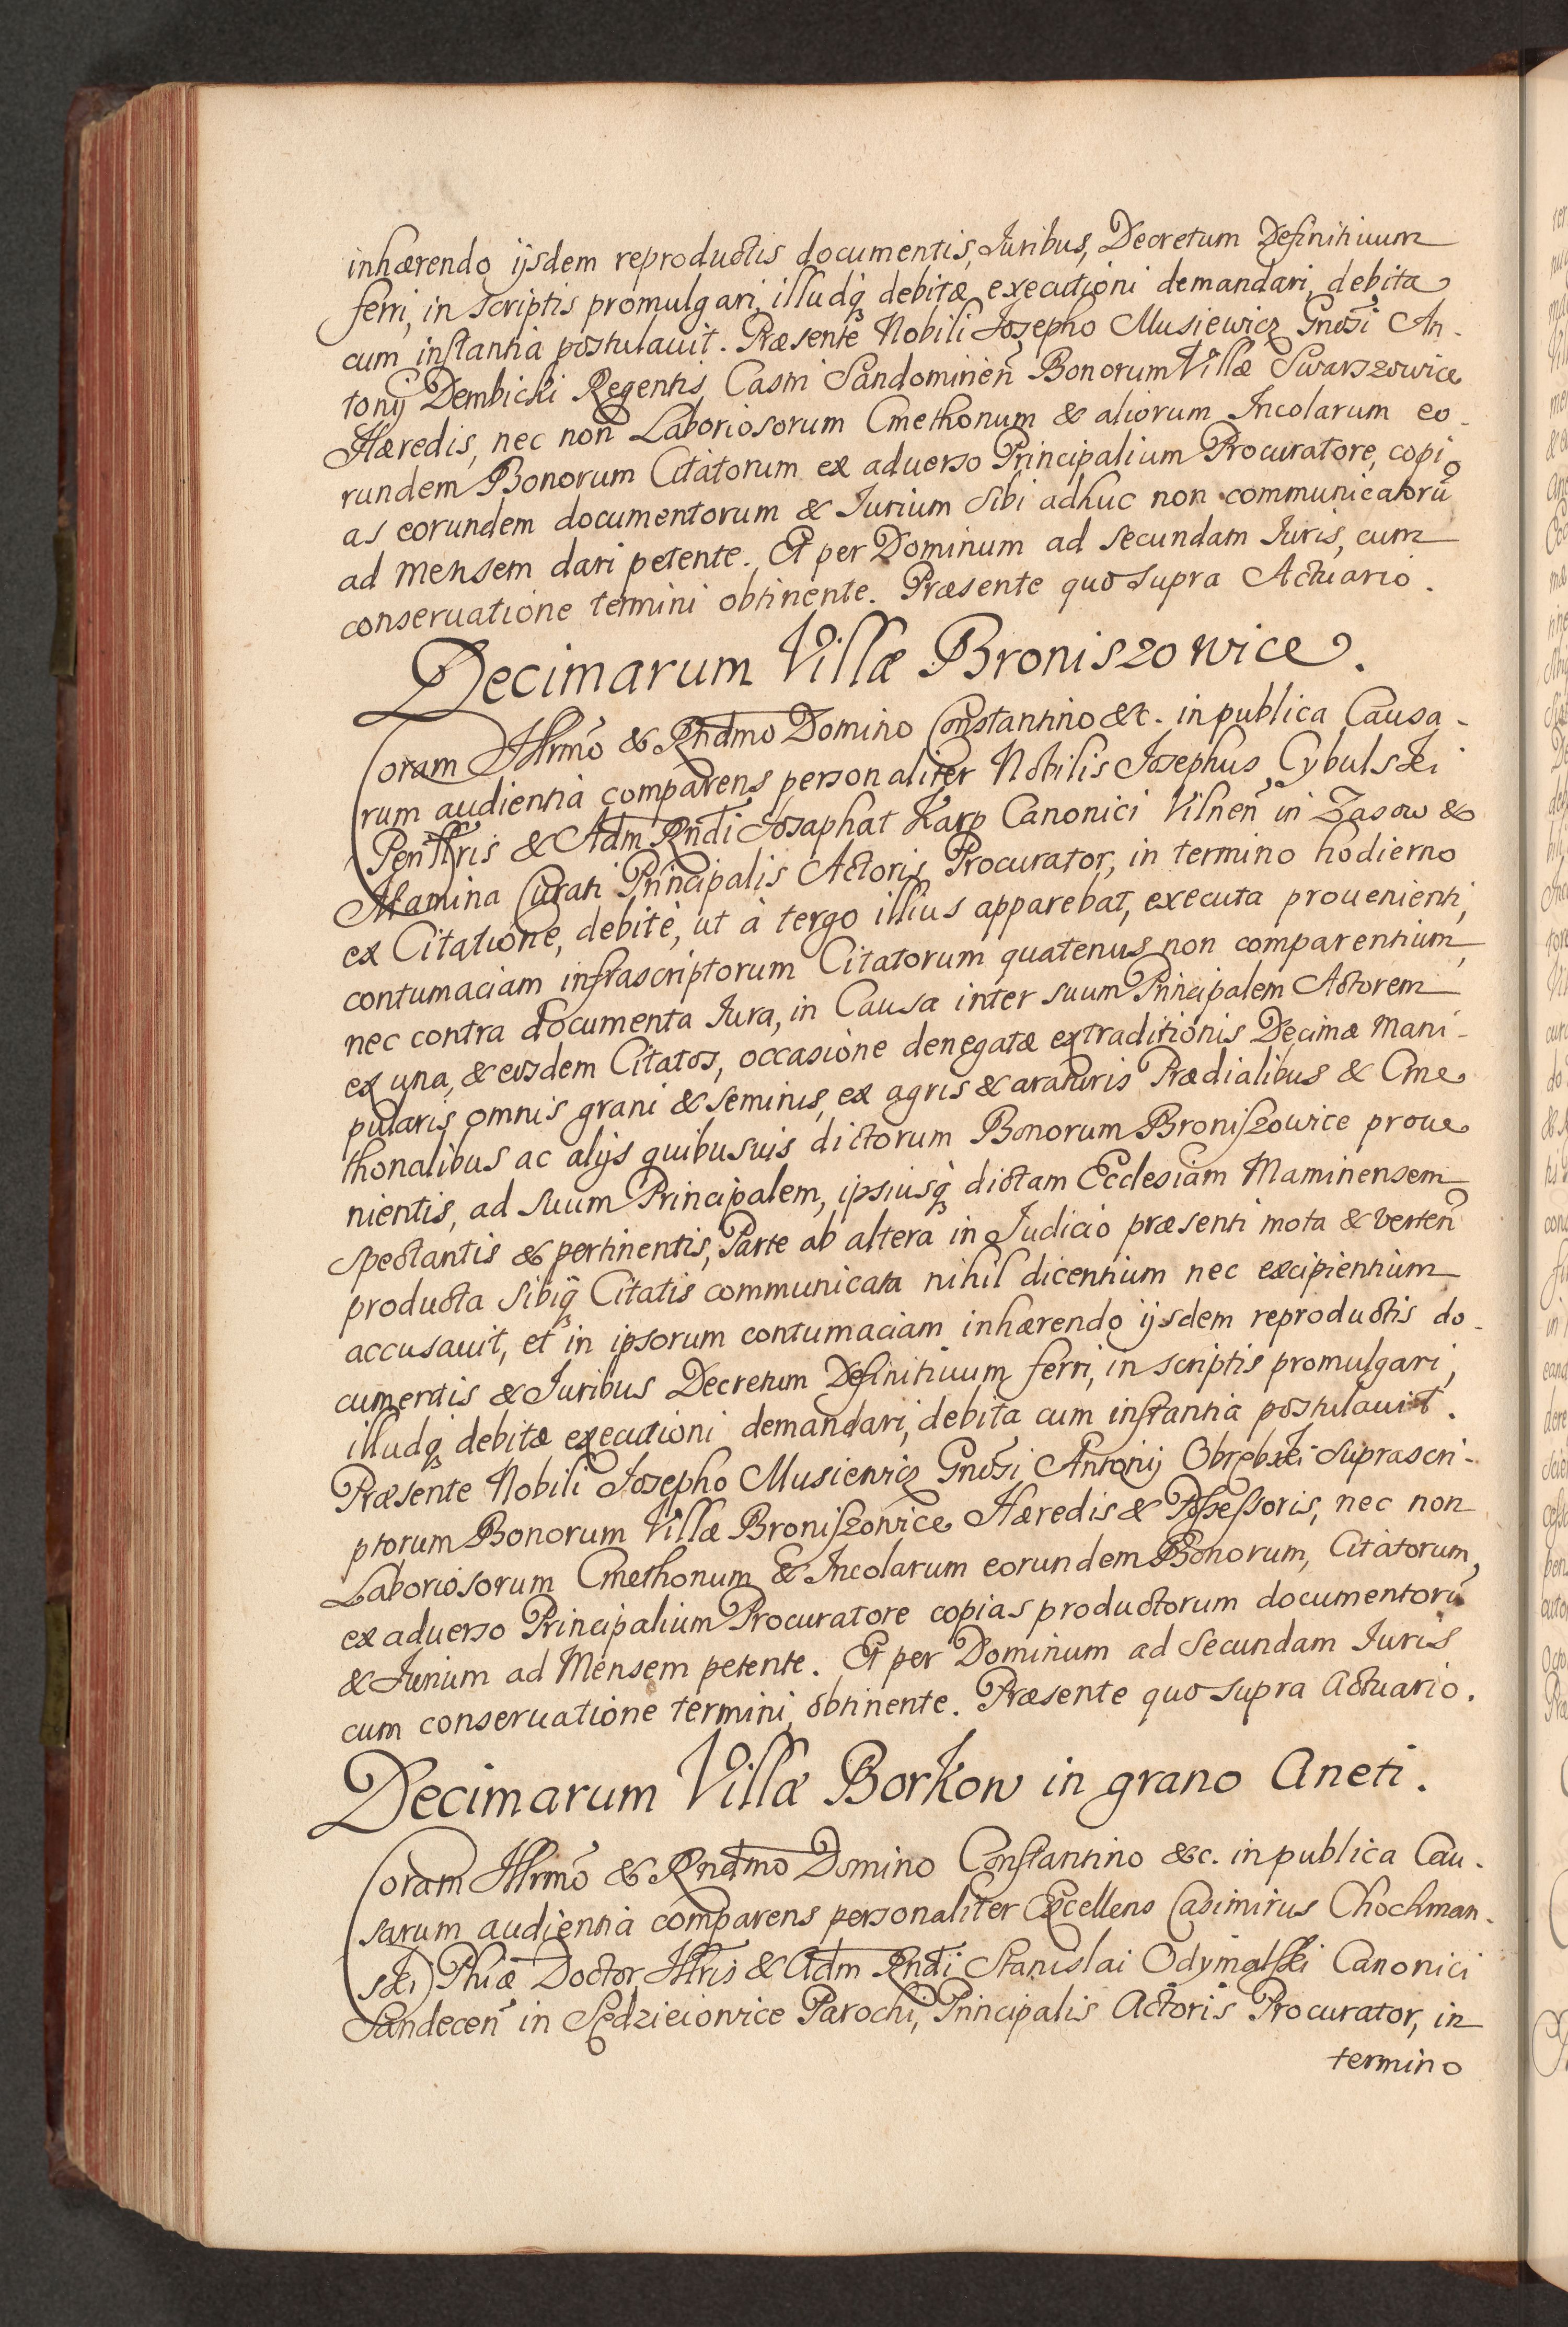 inhærendo ijsdem reproductis documentis, Juribus, Decretum Definitiuum
ferri, in scriptis promulgari, illudq́ʒ debitæ executioni demandari, debita
cum instantia postulauit. Præsente Nobili Josepho Musiewicz Gnosi An-
tonij Dembicki Regentis Castri Sandomirien̄ Bonorum Villæ Swarszowice
Hæredis, nec non Laboriosorum Cmethonum & aliorum Incolarum eo-
rundem Bonorum Citatorum ex aduerso Principalium Procuratore, copi
as eorundem documentorum & Jurium sibi adhuc non communicatorū
ad mensem dari petente. Et per Dominum ad secundam Juris, cum
conseruatione termini obtinente. Præsente quo supra Actuario.
Decimarum Villæ Broniszowice.
Coram Illrmo & Rndmo Domino Constantino &c. in publica Causa-
rum audientia comparens personaliter Nobilis Josephus Cybulski
Penllris & Adm Rndi Josaphat Karp Canonici Vilnen̄ in Zasow &
Mamina Curati Principalis Actoris Procurator, in termino hodierno
ex Citatione, debitè, ut à tergo illius apparebat, executa prouenienti,
contumaciam infrascriptorum Citatorum quatenus non comparentium,
nec contra documenta Jura, in Causa inter suum Principalem Actorem
ex una, & eosdem Citatos, occasione denegatæ extraditionis Decimæ mani-
pularis omnis grani & seminis, ex agris & araturis Prædialibus & Cme
thonalibus ac alijs quibusuis dictorum Bonorum Broniszowice proue
nientis, ad suum Principalem, ipsiusq́ʒ dictam Ecclesiam Maminensem
spectantis & pertinentis, Parte ab altera in Judicio præsenti mota & verten̄
producta sibiq́ʒ Citatis communicata nihil dicentium nec excipientium
accusauit, et in ipsorum contumaciam inhærendo ijsdem reproductis do-
cumentis & Juribus Decretum Definitiuum ferri, in scriptis promulgari,
illudq́ʒ debitæ executioni demandari, debita cum instantia postulauit.
Præsente Nobili Josepho Musiewicz Gnosi Antonij Obrębski suprascri-
ptorum Bonorum Villæ Broniszowice Hæredis & Possessoris, nec non
Laboriosorum Cmethonum & Incolarum eorundem Bonorum, Citatorum,
ex aduerso Principalium Procuratore copias productorum documentorū
& Jurium ad Mensem petente. Et per Dominum ad secundam Juris
cum conseruatione termini, obtinente. Præsente quo supra Actuario.
Decimarum Villæ Borkow in grano Aneti.
Coram Illrmo & Rndmo Domino Constantino &c. in publica Cau-
sarum audientia comparens personaliter Excellens Casimirus Chochman-
ski Phiæ Doctor Illris & Adm Rndi Stanislai Odymalski Canonici
Sandecen̄ in Sędzieiowice Parochi, Principalis Actoris Procurator, in
termino